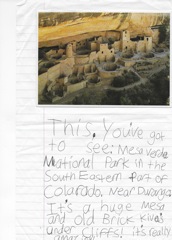 This, You've got
to see: Mesa Verde
National Park in the
South Eastern Part of
Colarado. Near Durango
It's a huge Mesa
and old Brick Kivas
under Cliffs! it's really
amazing